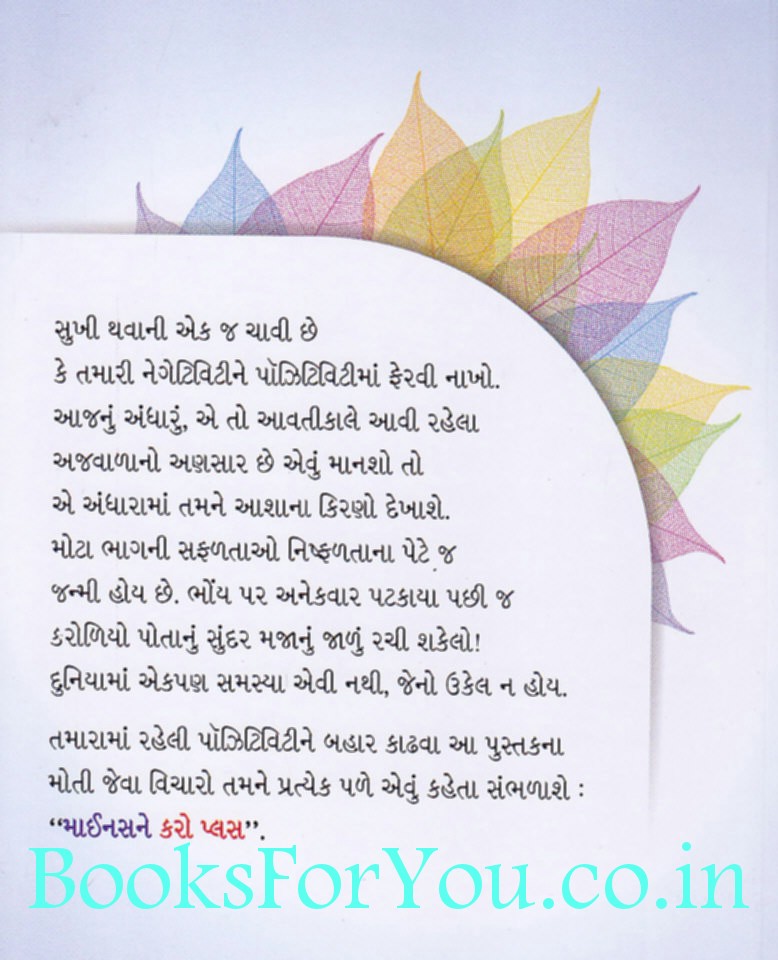 સુખી થવાની એક જ ચાવી છે
કે તમારી નેગેટિવિટીને પૉઝિટિવિટીમાં ફેરવી નાખો.
આજનું અંધારું, એ તો આવતીકાલે આવી રહેલા
અજવાળાનો અણસાર છે એવું માનશો તો
એ અંધારામાં તમને આશાના કિરણો દેખાશે.
મોટા ભાગની સફળતાઓ નિષ્ફળતાના પેટે જ
જન્મી હોય છે. ભોંય પર અનેકવાર પટકાયા પછી જ
કરોળિયો પોતાનું સુંદર મજાનું જાળું રચી શકેલો!
દુનિયામાં એકપણ સમસ્યા એવી નથી, જેનો ઉકેલ ન હોય.
તમારામાં રહેલી પૉઝિટિવિટીને બહાર કાઢવા આ પુસ્તકના
મોતી જેવા વિચારો તમને પ્રત્યેક પળે એવું કહેતા સંભળાશે :
“માઈનસને કરો પ્લસ”.
BooksForYou.co.in